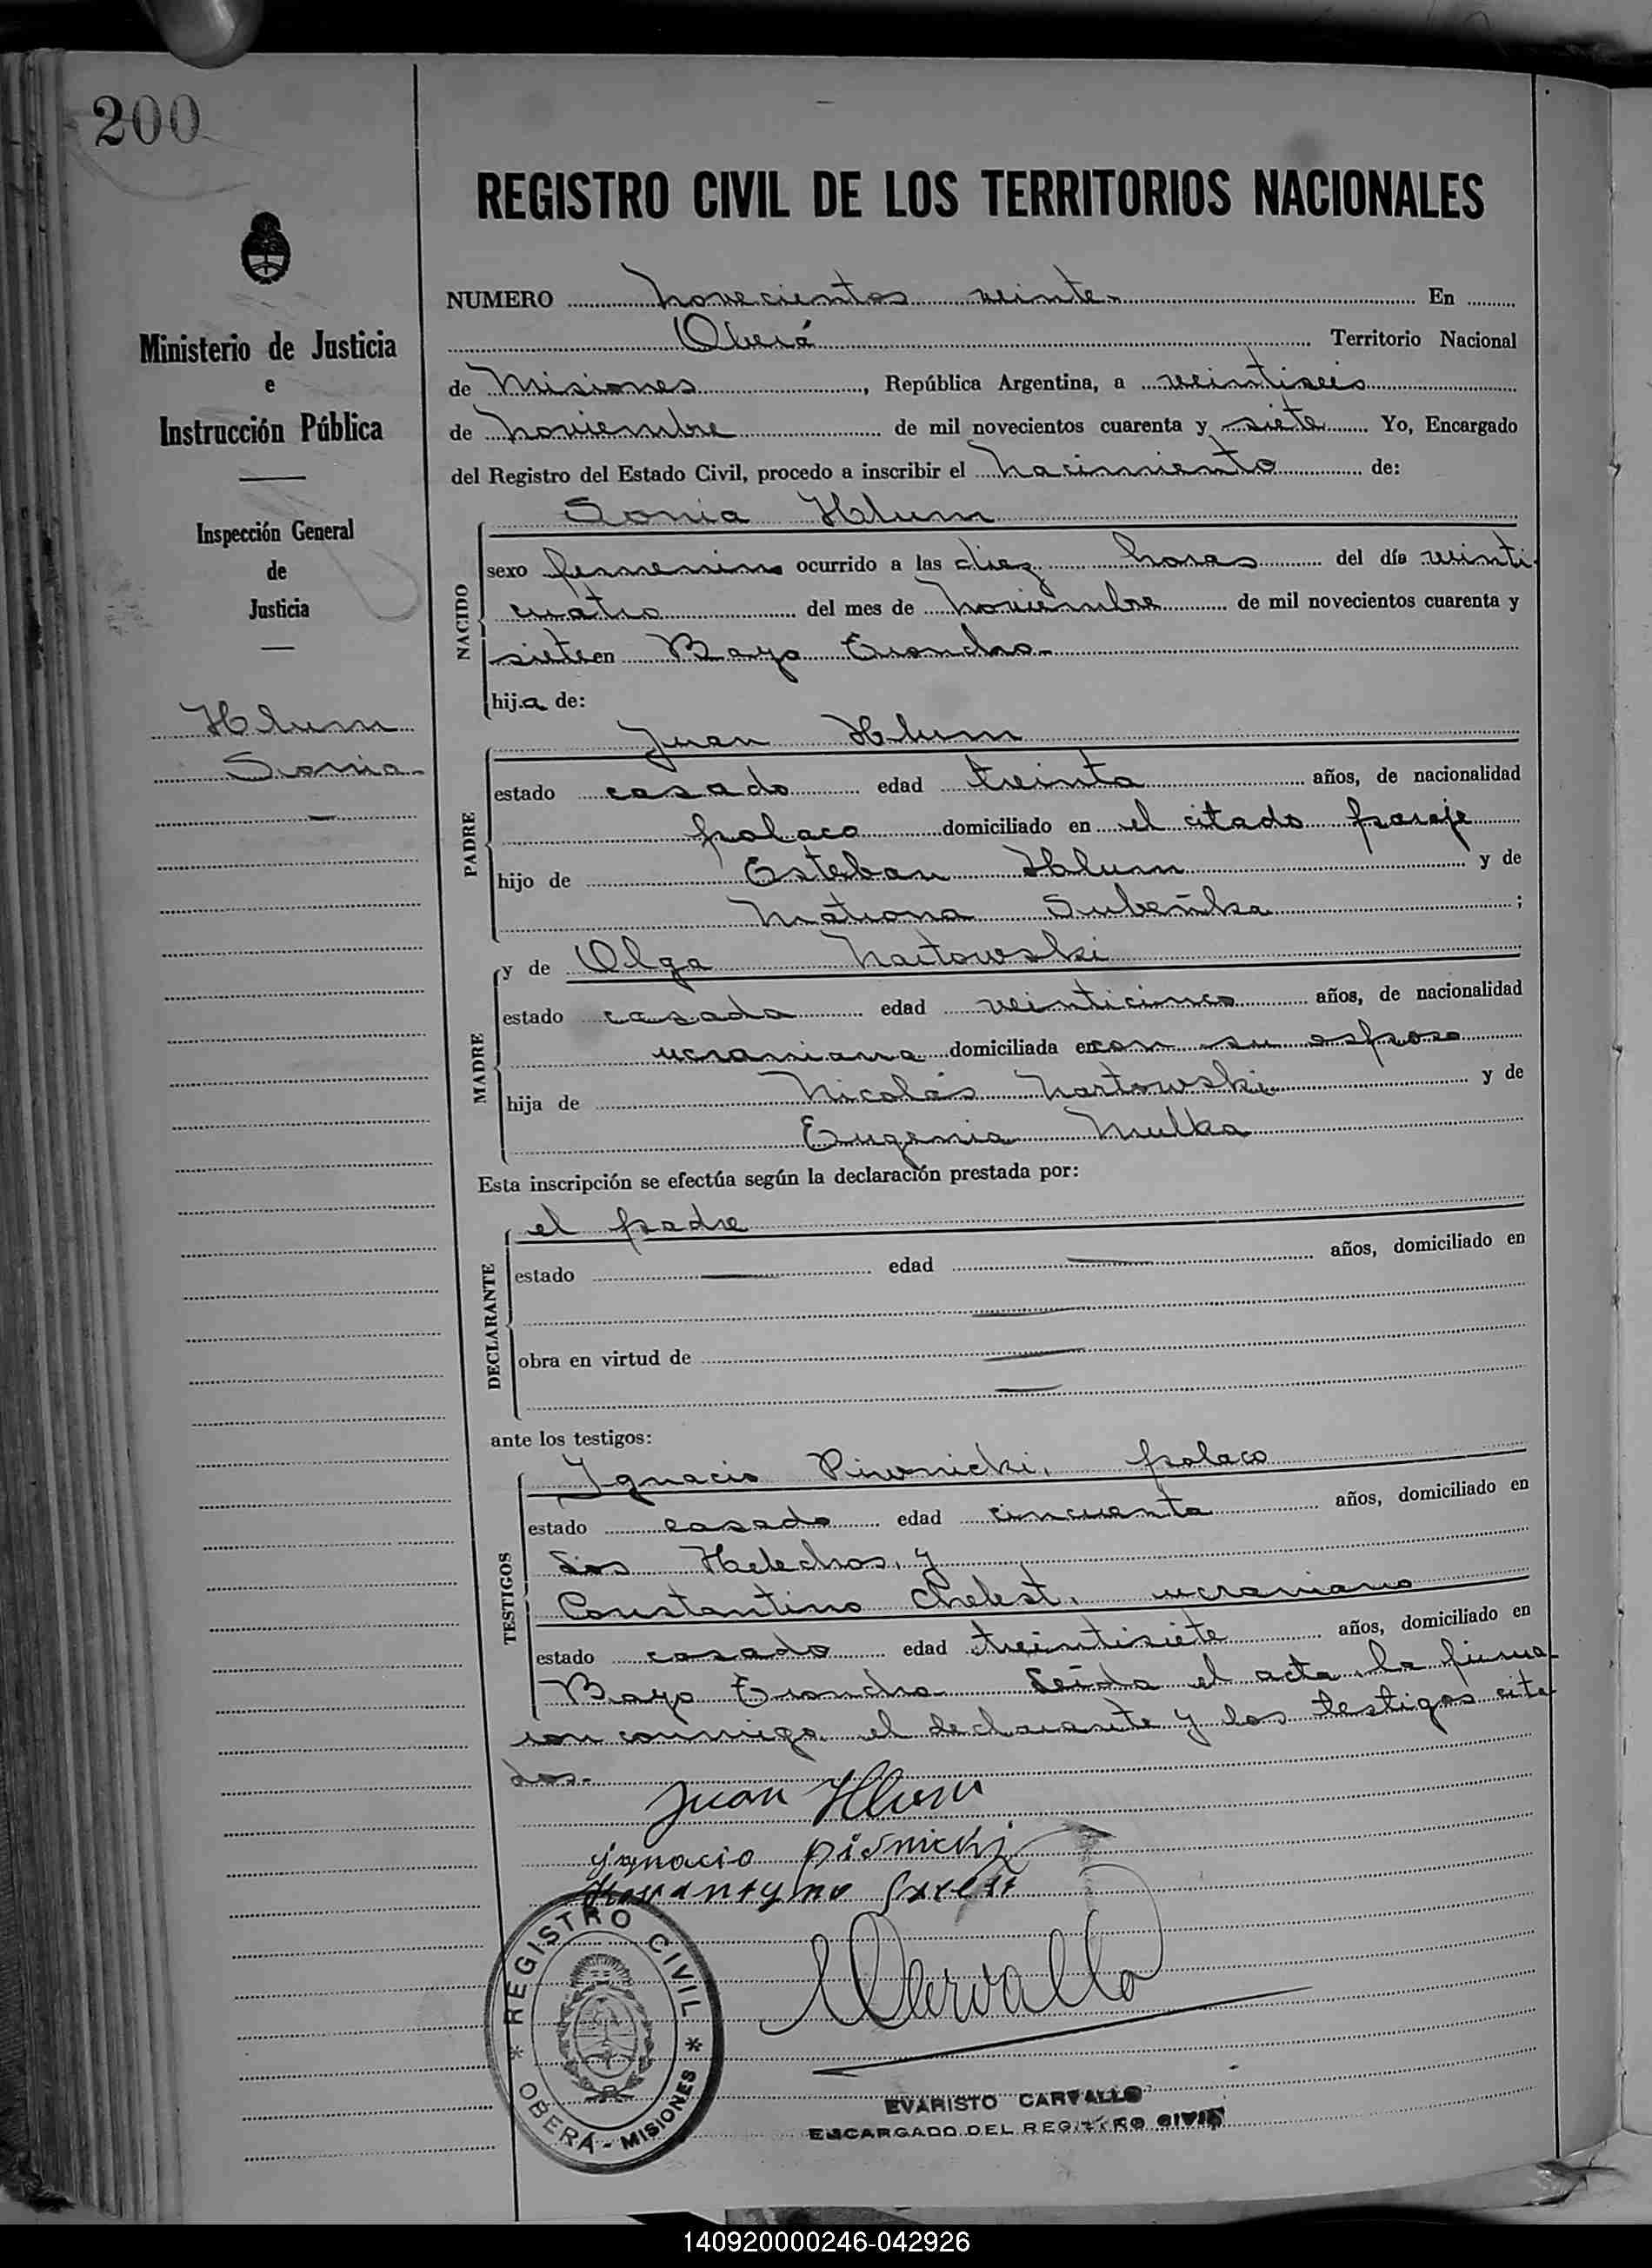 200
REGISTRO CIVIL DE LOS TERRITORIOS NACIONALES
Ministerio de Justicia
e
Instrucción Pública
Inspección General
de
Justicia
Hlum
Sonia
NUMERO novecientos veinte.- En
Oberá Territorio Nacional
de Misiones, República Argentina, a veintiseis
de noviembre de mil novecientos cuarenta y siete Yo, Encargado
del Registro del Estado Civil, procedo a inscribir el nacimiento de:
NACIDO
Sonia Hlum
sexo femenino ocurrido a las diez horas del día veinti
cuatro del mes de noviembre de mil novecientos cuarenta y
siete en Bayo Troncho.-
hija de:
PADRE
Juan Hlum
estado casado edad treinta años, de nacionalidad
polaco domiciliado en el citado paraje
hijo de Esteban Hlum y de
Matrona ;
MADRE
y de Olga
estado casada edad veinticinco años, de nacionalidad
ucraniana domiciliada en con su esposo
hija de Nicolás y de
Eugenia
Esta inscripción se efectúa según la declaración prestada por:
DECLARANTE
el padre
estado — edad — años, domiciliado en
—
obra en virtud de —
—
ante los testigos:
TESTIGOS
Ignacio Piwnicki, polaco
estado casado edad cincuenta años, domiciliado en
Los Helechos, y
Constantino Chelest, ucraniano
estado casado edad treintisiete años, domiciliado en
Bayo Troncho Leída el acta, la firma
ron conmigo el declarante y los testigos cita
dos.-
Juan Hlum
ignacio
Carvallo
REGISTRO CIVIL
* OBERÁ - MISIONES *
EVARISTO CARVALLO
ENCARGADO DEL REGISTRO CIVIL
140920000246-042926